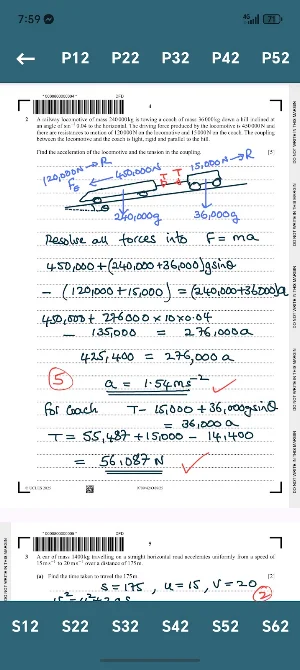 7:59
4G
71
← P12 P22 P32 P42 P52
DFD
4
2 A railway locomotive of mass 240 000 kg is towing a coach of mass 36 000 kg down a hill inclined at
an angle of sin⁻¹ 0.04 to the horizontal. The driving force produced by the locomotive is 450 000 N and
there are resistances to motion of 120 000 N on the locomotive and 15 000 N on the coach. The coupling
between the locomotive and the coach is light, rigid and parallel to the hill.
Find the acceleration of the locomotive and the tension in the coupling. [5]
120,000N → R
450,000N
T T
15,000N → R
240,000g
36,000g
Resolve all forces into F = ma
450,000 + (240,000 + 36,000) g sinθ
− (120,000 + 15,000) = (240,000 + 36,000)a
450,000 + 276000 × 10 × 0.04
− 135,000 = 276,000a
425,400 = 276,000a
5
a = 1.54 ms⁻²
For Coach T − 15,000 + 36,000g sinθ
= 36,000a
T = 55,487 + 15,000 − 14,400
= 56,087 N
DO NOT WRITE IN THIS MARGIN
DFD
5
3 A car of mass 1400 kg travelling on a straight horizontal road accelerates uniformly from a speed of
15 m s⁻¹ to 20 m s⁻¹ over a distance of 175 m.
(a) Find the time taken to travel the 175 m. [2]
S = 175, u = 15, V = 20
2
DO NOT WRITE IN THIS MARGIN
S12 S22 S32 S42 S52 S62